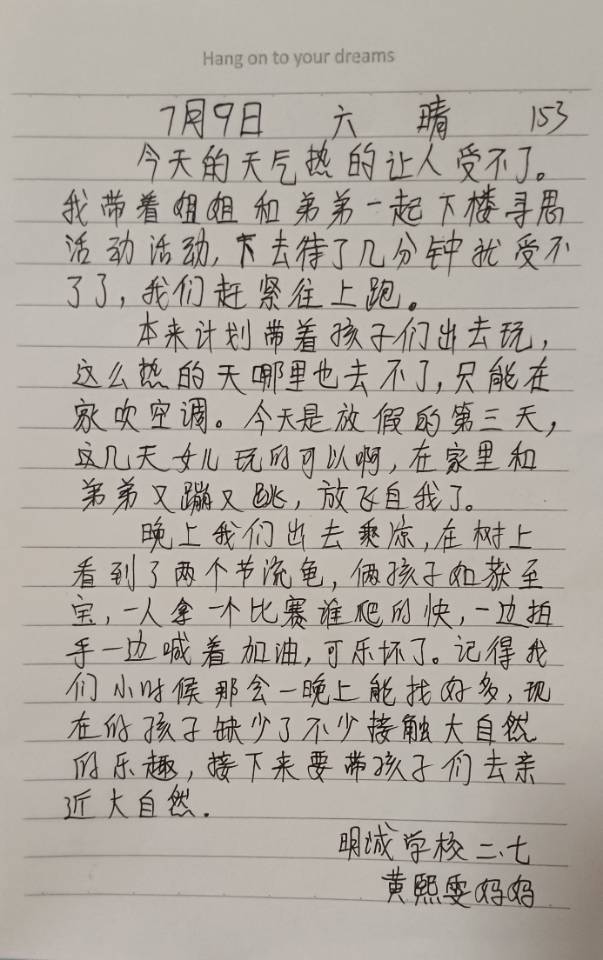 Hang on to your dreams
7月9日 六 晴 153
今天的天气热的让人受不了。
我带着姐姐和弟弟一起下楼寻思
活动活动,下去待了几分钟就受不
了了,我们赶紧往上跑。
本来计划带着孩子们出去玩,
这么热的天哪里也去不了,只能在
家吹空调。今天是放假的第三天,
这几天女儿玩的可以啊,在家里和
弟弟又蹦又跳,放飞自我了。
晚上我们出去乘凉,在树上
看到了两个节流龟,俩孩子如获至
宝,一人拿一个比赛谁爬的快,一边拍
手一边喊着加油,可乐坏了。记得我
们小时候那会一晚上能找好多,现
在的孩子缺少了不少接触大自然
的乐趣,接下来要带孩子们去亲
近大自然.
明诚学校二、七
黄熙雯妈妈